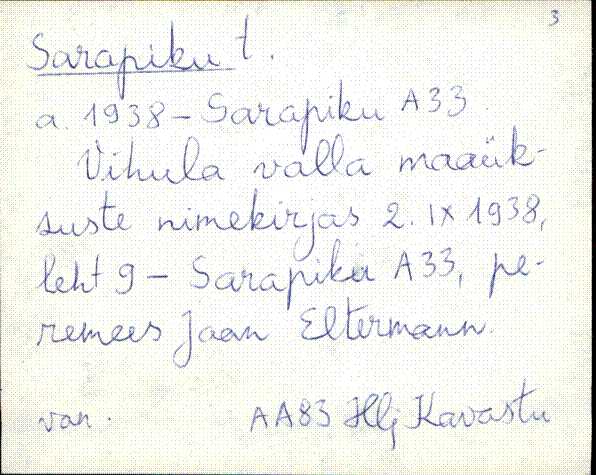 3
Sarapiku t.
a. 1938 - Sarapiku A33.
Vihula valla maaük-
suste nimekirjas 2. IX 1938,
leht 9 - Sarapiku A33, pe-
remees Jaan Eltermann.
van. AA83 Hlj Kavastu